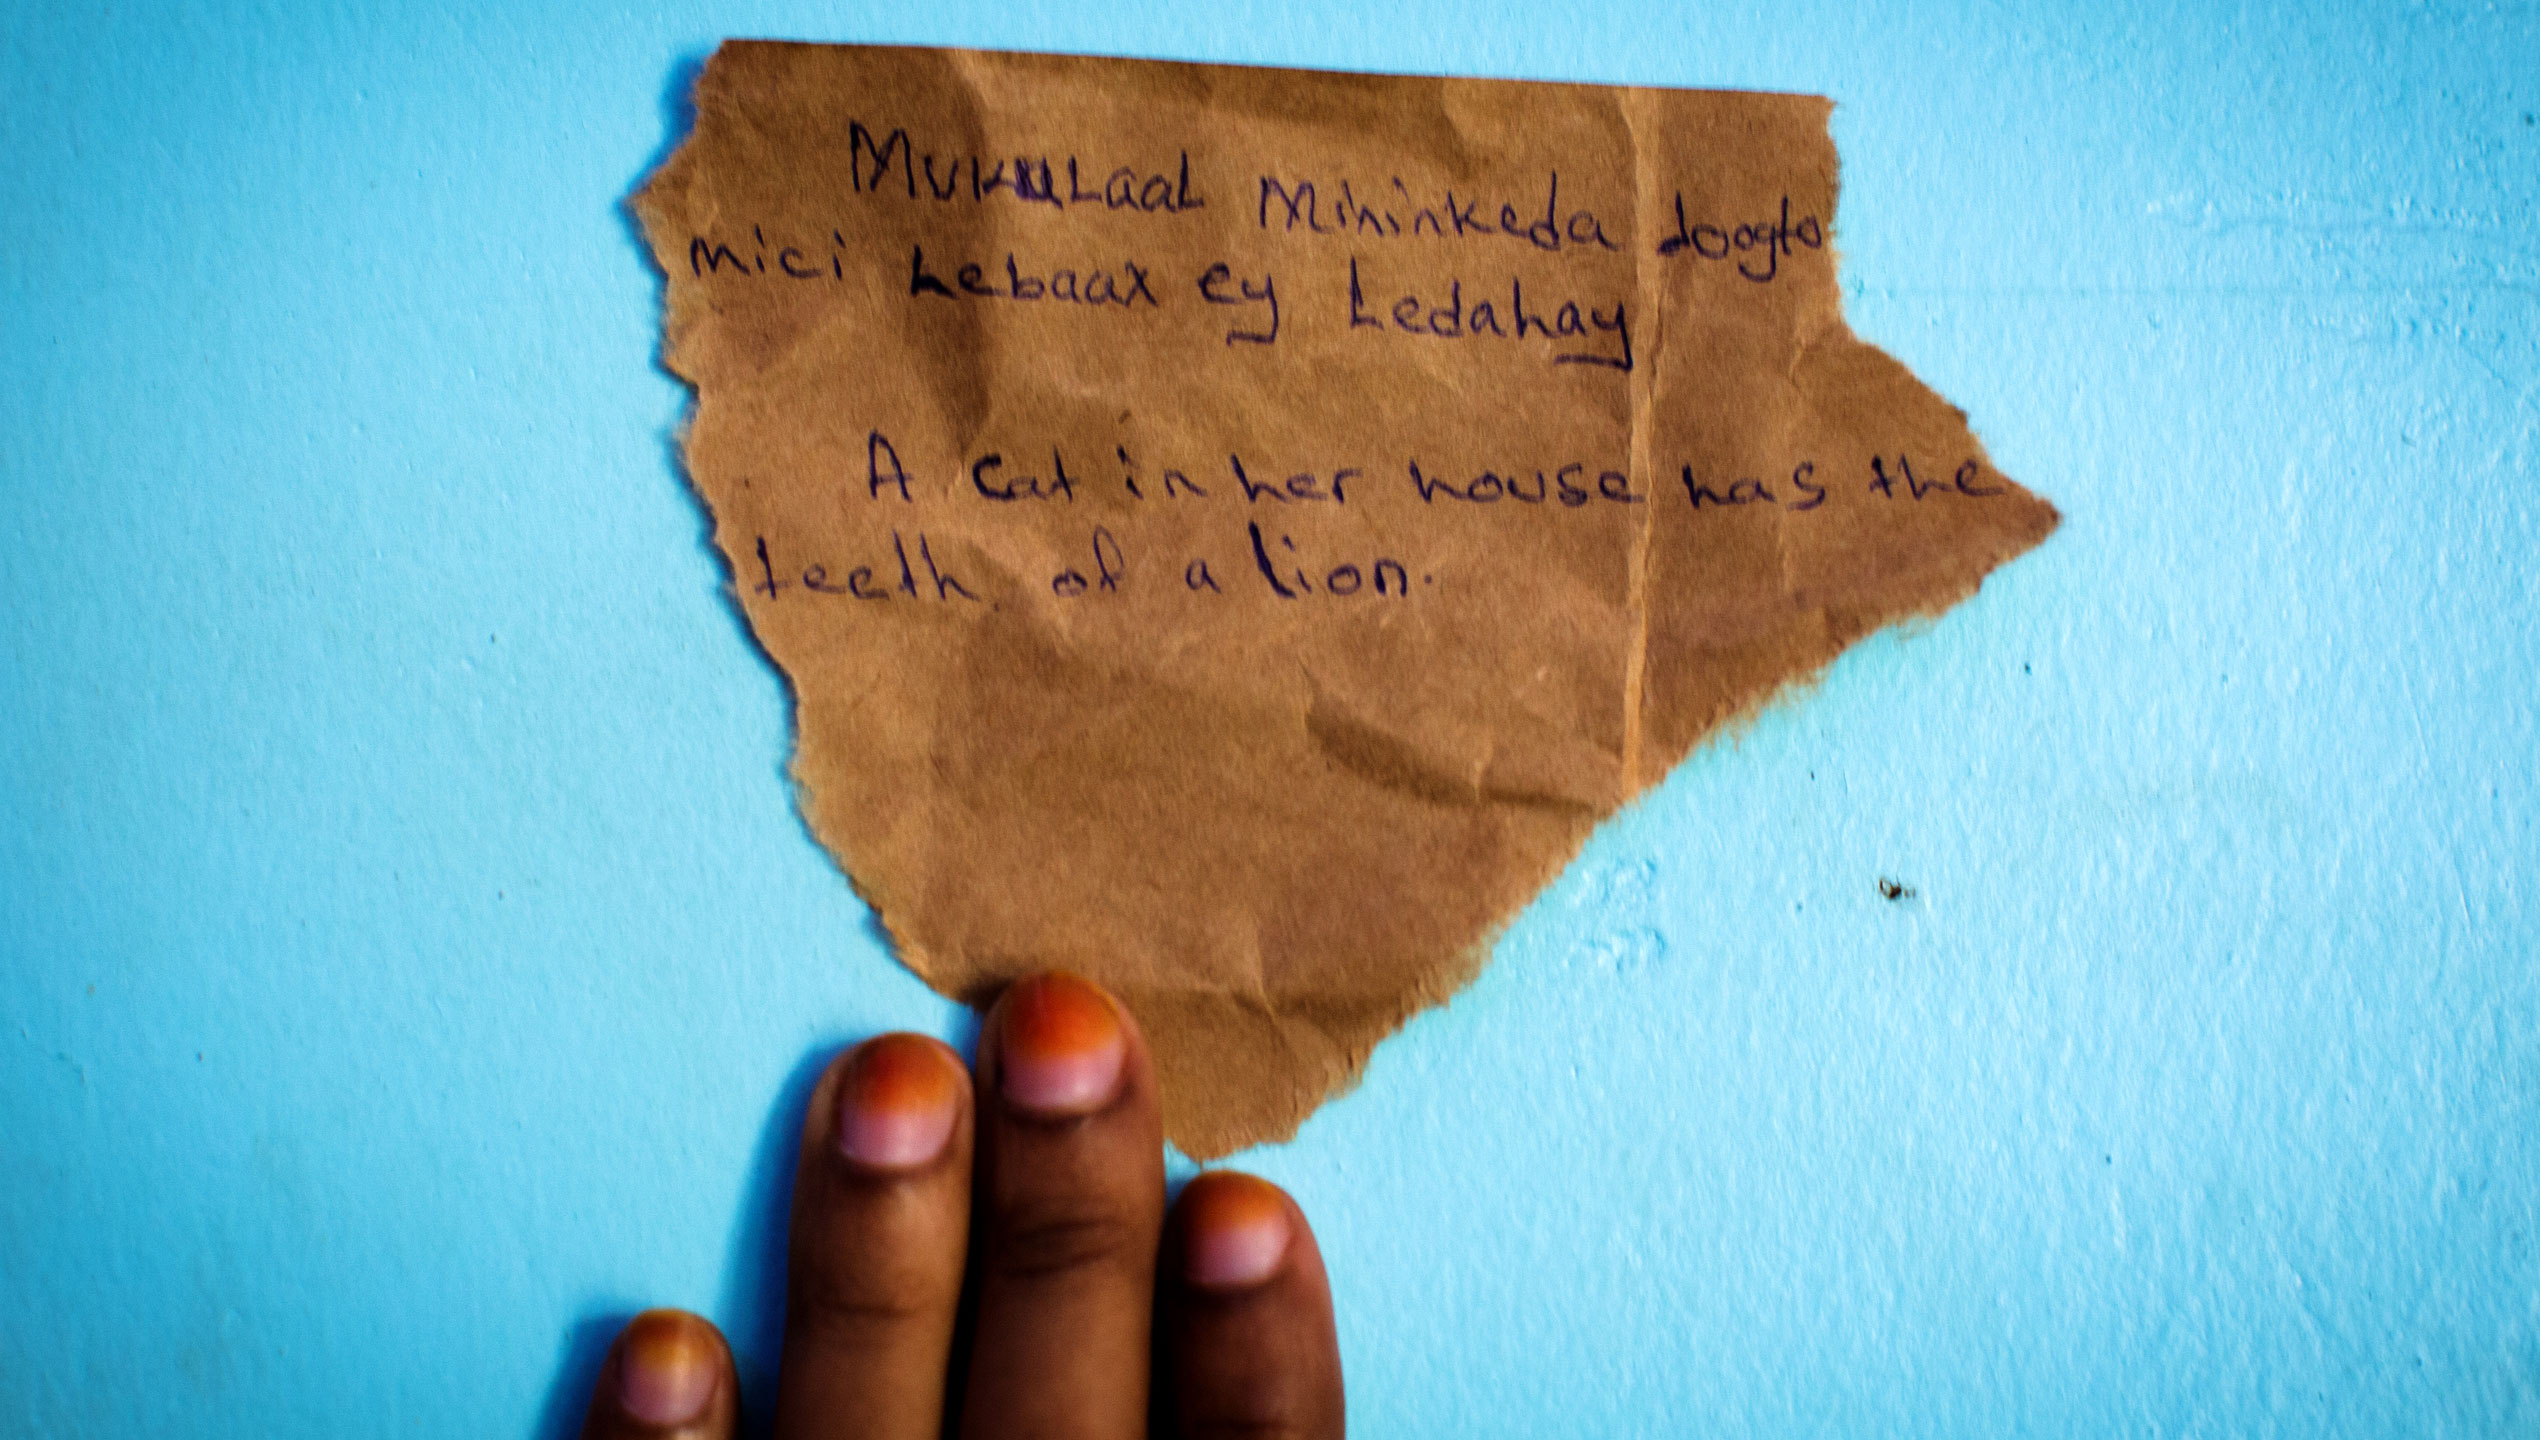 Mukulaal Mininkeda joogto
mici Lebaax ey Ledahay
A cat in her house has the
teeth of a lion.